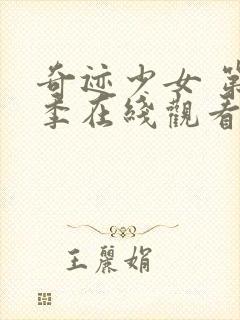 奇迹少女 第
季在綫觀看
王麗娟